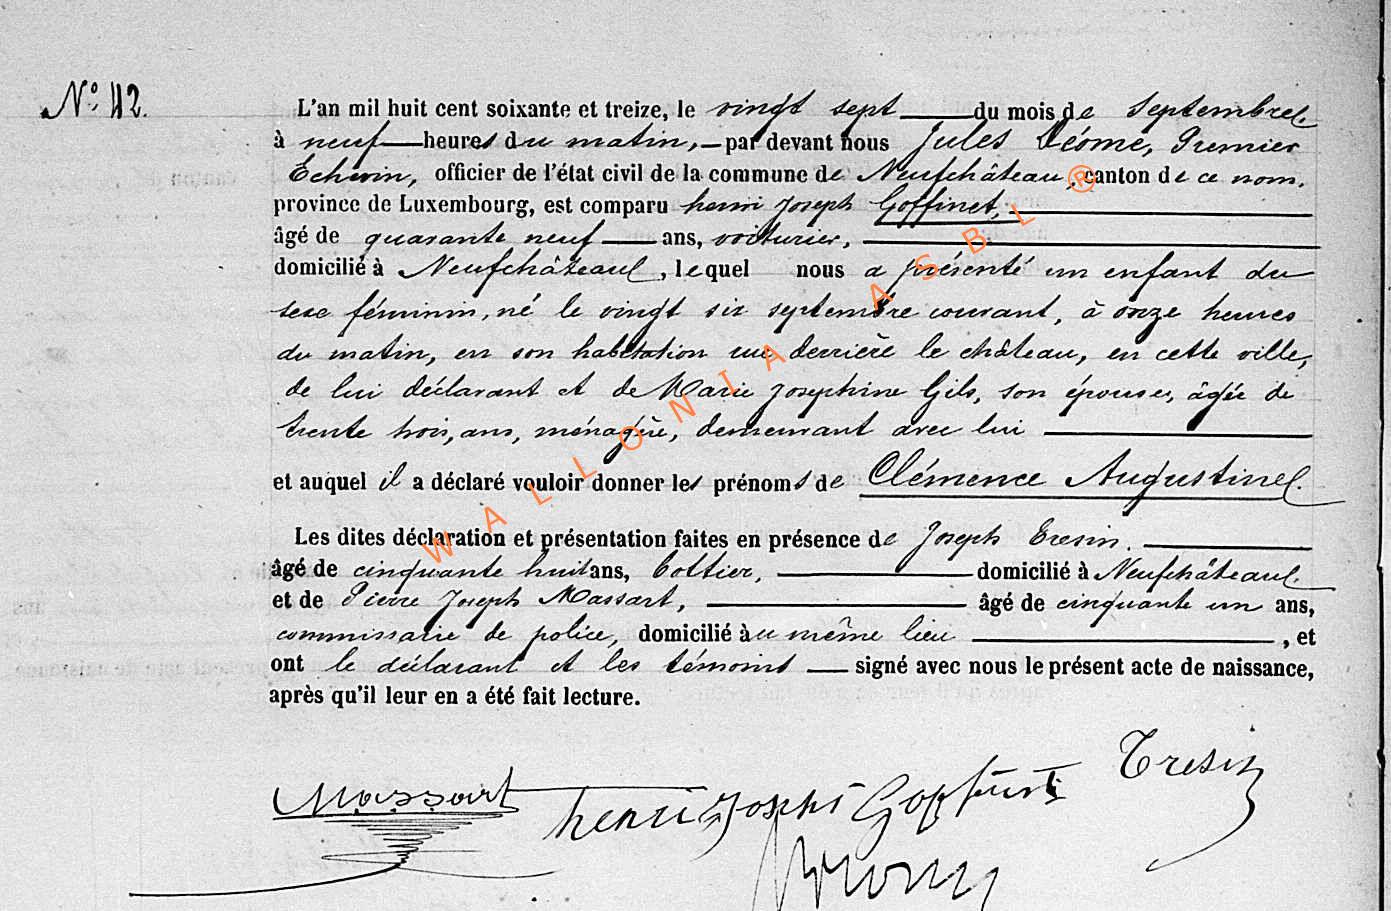 N° 42.
L'an mil huit cent soixante et treize, le vingt sept du mois de Septembre
à neuf heures du matin, par devant nous Jules Déome, Premier
Echevin, officier de l'état civil de la commune de Neufchâteau, canton de ce nom,
province de Luxembourg, est comparu henri Joseph Goffinet,
âgé de quarante neuf ans, voiturier,
domicilié à Neufchâteau, lequel nous a présenté un enfant du
sexe féminin, né le vingt six septembre courant, à onze heures
du matin, en son habitation rue derrière le château, en cette ville,
de lui déclarant et de Marie Josephine Gils, son épouse, âgée de
trente trois, ans, ménagère, demeurant avec lui
et auquel il a déclaré vouloir donner les prénoms de Clémence Augustine.
Les dites déclaration et présentation faites en présence de Joseph Tresin.
âgé de cinquante huit ans, Cottier, domicilié à Neufchâteau
et de Pierre Joseph Massart, âgé de cinquante un ans,
commissaire de police, domicilié au même lieu, et
ont le déclarant et les témoins signé avec nous le présent acte de naissance,
après qu'il leur en a été fait lecture.
Tresin
Massart henri Joseph Goffinet
WALLONIA ASBL ®